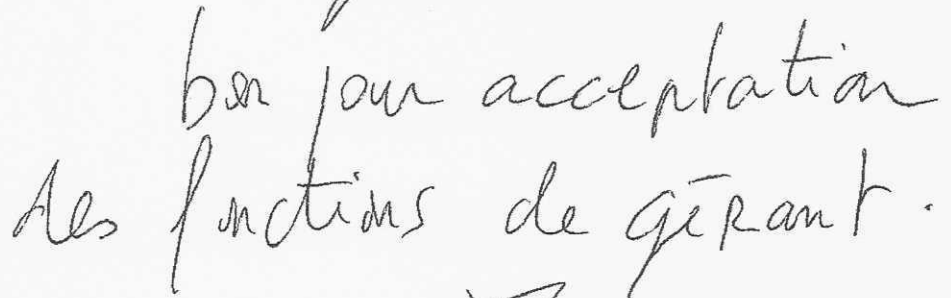 bon pour acceptation
des fonctions de gérant.